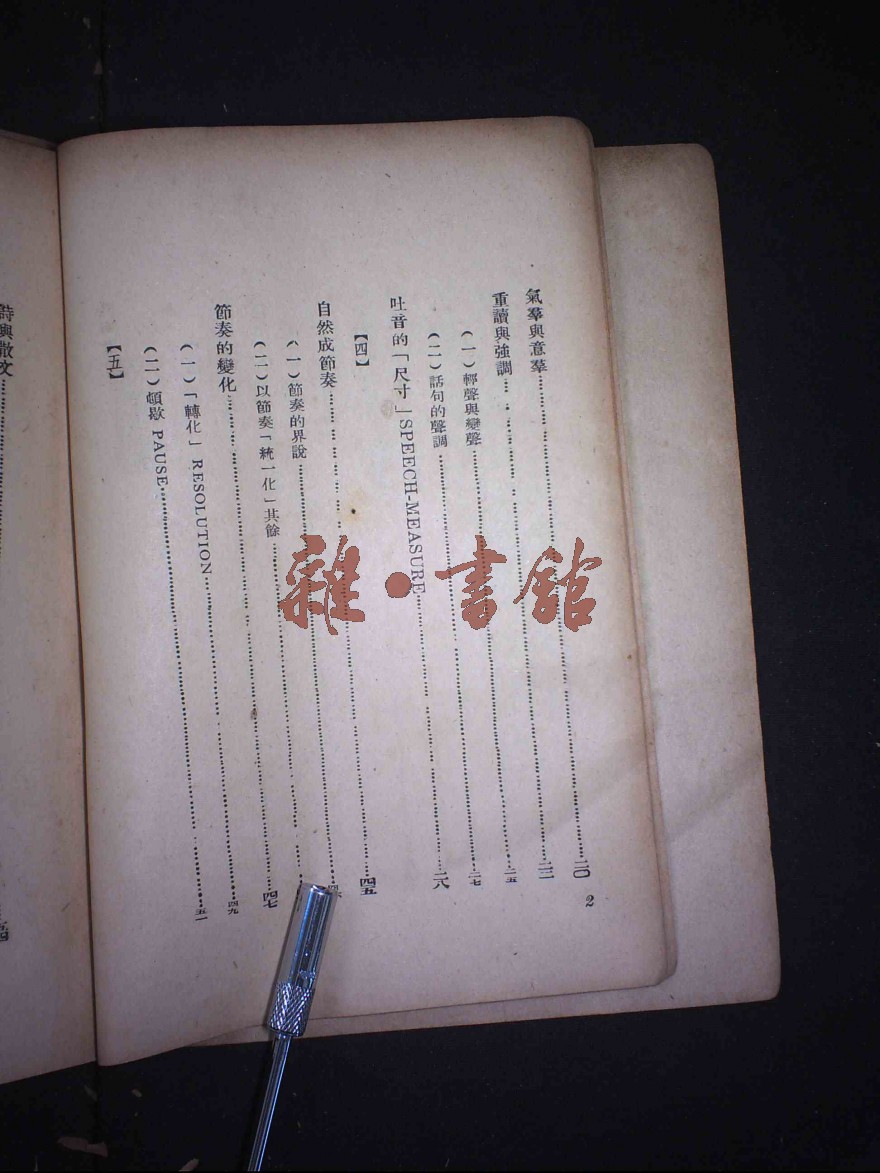 2
氣羣與意羣……二〇
重讀與強調……
（一）輕聲與變聲……二五
（二）話句的聲調……二七
吐音的「尺寸」SPEECH-MEASURE……二八
【四】
自然成節奏……四五
（一）節奏的界說……
（二）以節奏「統一化」其餘……
節奏的變化……四七
（一）「轉化」 RESOLUTION……四九
（二）頓歇 PAUSE……五一
【五】
詩與散文……五四
雜·書館